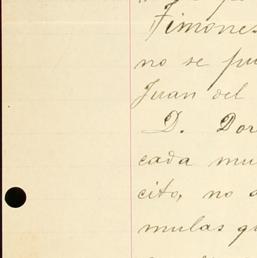 Timones
no se pu
Juan del
D. Dor
cada mu
cito, no a
mulas qu